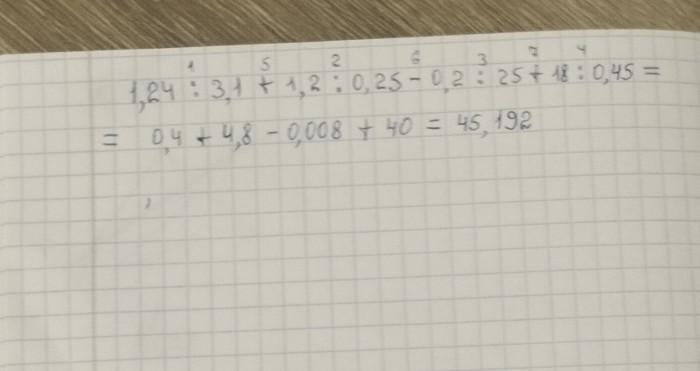 1 5 2 6 3 7 4
1,24 : 3,1 + 1,2 : 0,25 - 0,2 : 25 + 18 : 0,45 =
= 0,4 + 4,8 - 0,008 + 40 = 45,192